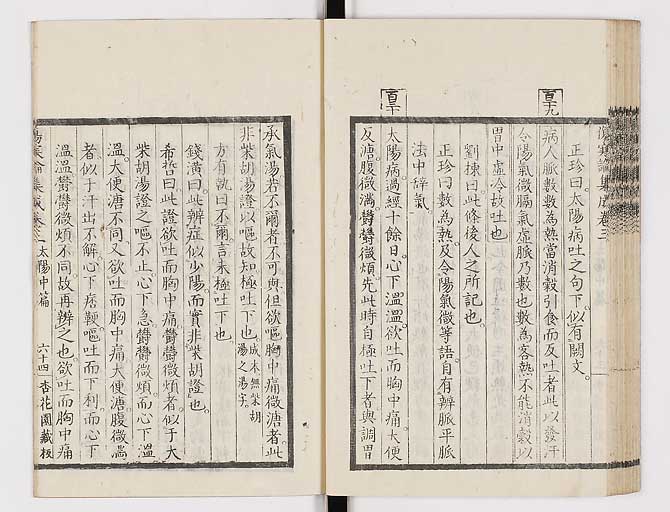 傷寒論集成卷三
百十九
正珍曰太陽病吐之句下。似有闕文。
病人脈數數為熱當消穀引食而反吐者此以發汗
令陽氣微膈氣虛脈乃數也數為客熱不能消穀以
胃中虛冷故吐也
劉棟曰此條後人之所記也。
正珍曰數為熱。及令陽氣微等語自有辨脈平脈
法中辭氣
百二十
太陽病過經十餘日心下溫溫欲吐而胸中痛大便
反溏腹微滿鬱鬱微煩先此時自極吐下者與調胃
承氣湯若不爾者不可與但欲嘔胸中痛微溏者此
非柴胡湯證以嘔故知極吐下也。成本無柴胡湯之湯字。
方有執曰不爾言未極吐下也
錢潢曰此辨症似少陽而實非柴胡證也。
希哲曰此證欲吐而胸中痛鬱鬱微煩者。似于大
柴胡湯證之嘔不止心下急鬱鬱微煩而心下溫
溫大便溏不同又欲吐而胸中痛大便溏腹微滿
者似于汗出不解。心下痞鞕嘔吐而下利而心下
溫溫鬱鬱微煩不同故再辨之也欲吐而胸中痛
傷寒論集成卷三 太陽中篇 六十四 杏花園藏板